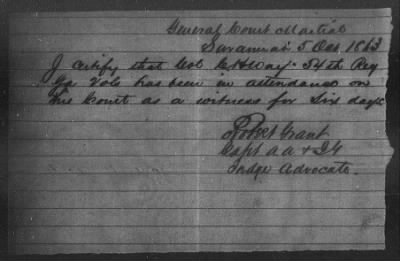 General Court Martial
Savannah 5 Dec 1863
I certify that Col C H Way 54th Reg
Ga Vols has been in attendance on
the Court as a witness for Six days
Robt Grant
Capt AA & IG
Judge Advocate.